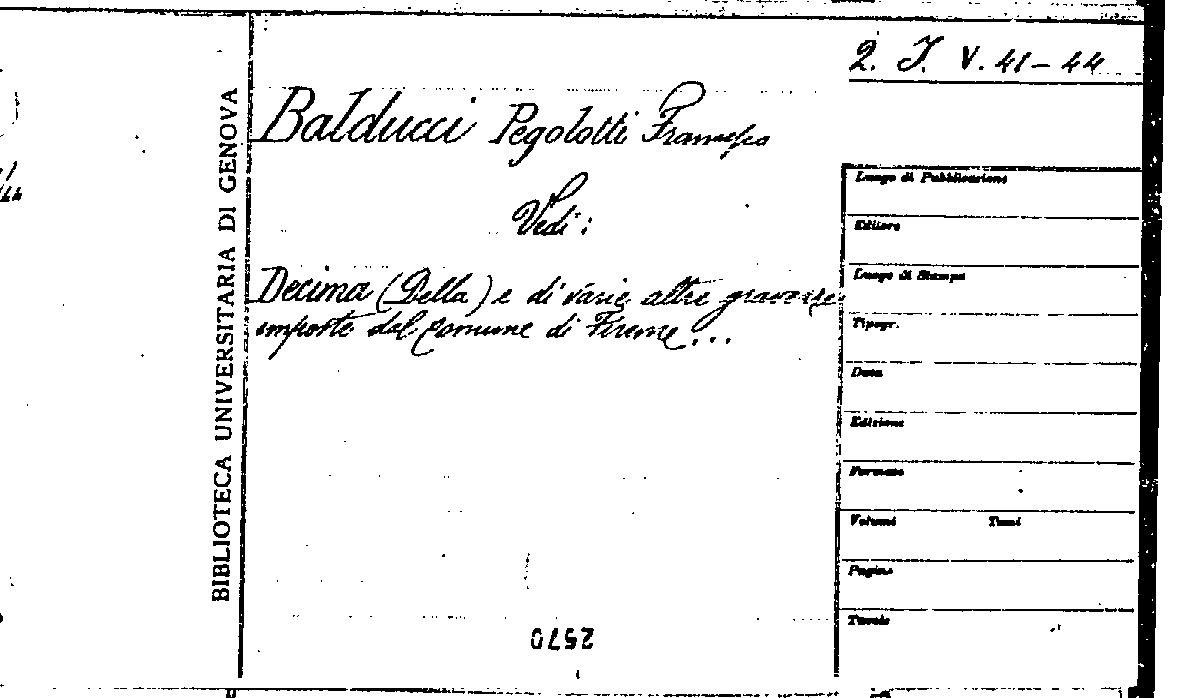 2. J. V. 41-44
Balducci Pegolotti Francesco
Vedi:
Decima (Della) e di varie altre gravezze
imposte dal Comune di Firenze...
BIBLIOTECA UNIVERSITARIA DI GENOVA
Luogo di Pubblicazione
Editore
Luogo di Stampa
Tipogr.
Data
Edizione
Formato
Volumi Tomi
Pagine
Tavole
2570